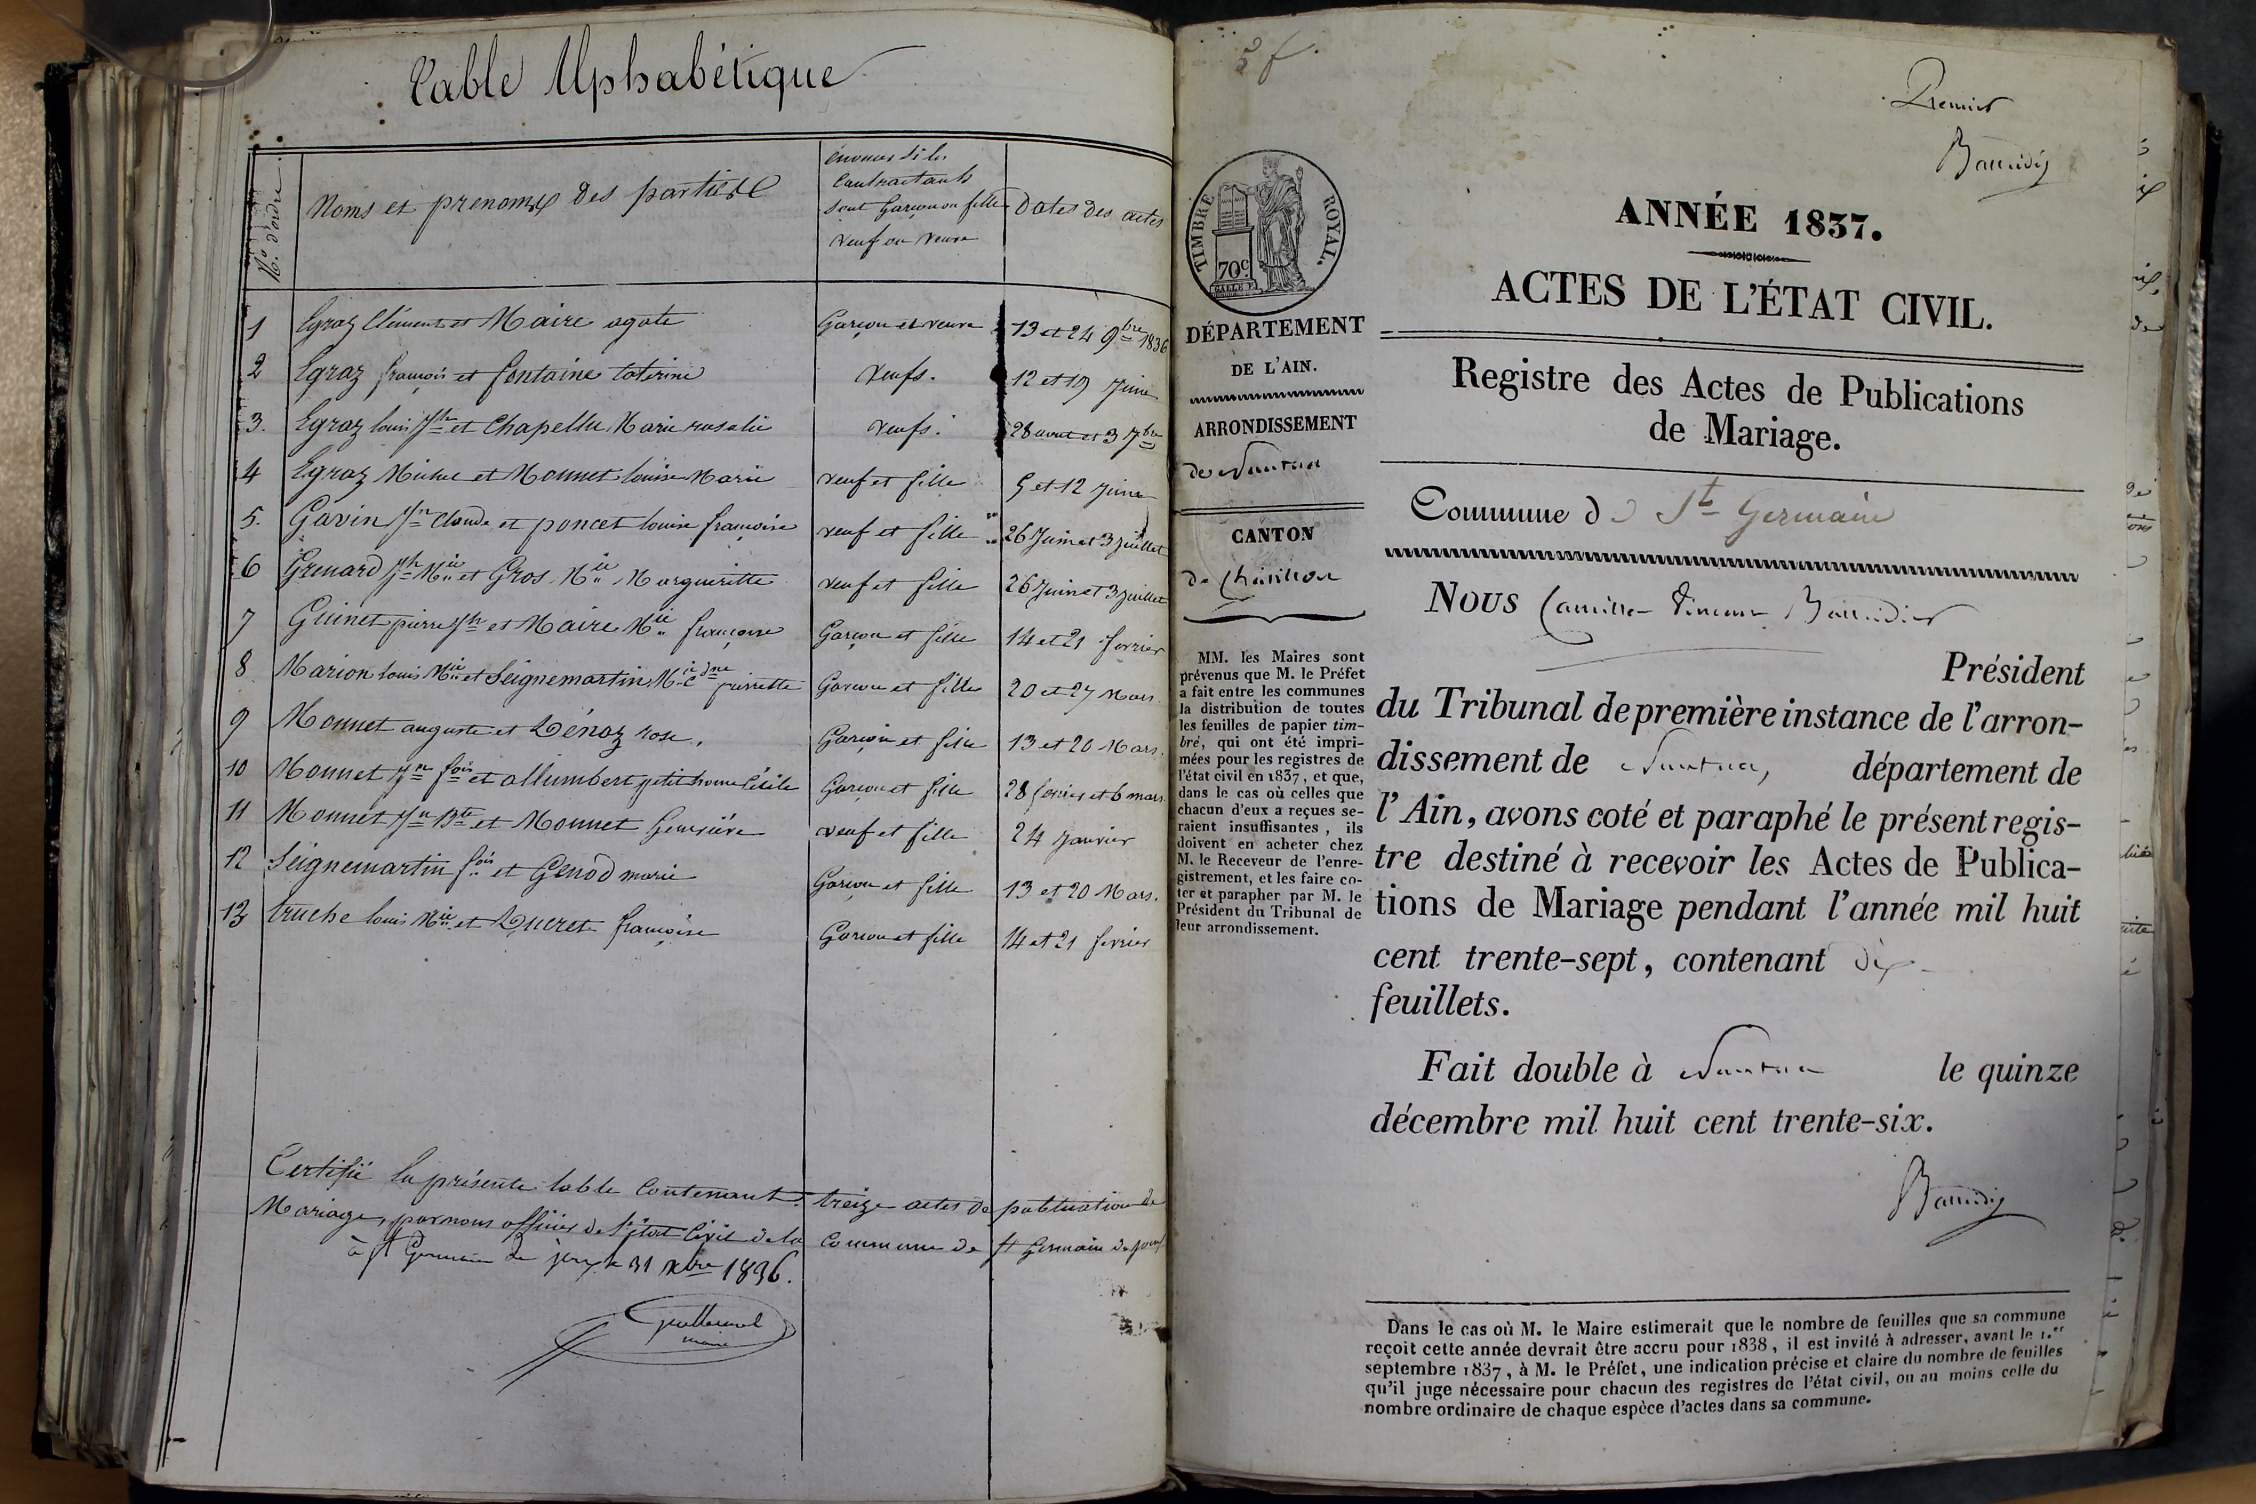 Table Alphabétique
N.o d'ordre
Noms et prenoms des parties
énoncer si les
Contractants
sont Garçon ou fille
veuf ou veuve
Dates des actes
1 Egraz Clément et Maire agate Garçon et veuve 13 et 24 9bre 1836
2 Egraz françois et fontaine caterine veufs. 12 et 19 juin
3. Egraz louis Jh et Chapellu Marie rosalie veufs. 28 aout et 3 7bre
4 Egraz Michel et Monnet louise Marie veuf et fille 5 et 12 juin
5. Gavin Jn Claude et poncet louise françoise veuf et fille 26 Juin et 3 juillet
6 Grenard Jh Mie et Gros Mie Margueritte veuf et fille 26 Juin et 3 juillet
7 Guinet pierre Jh et Maire Mie françoise Garçon et fille 14 et 21 fevrier
8 Marion louis Mie et Seignemartin Mie pierrette Garçon et fille 20 et 27 Mars
9 Monnet auguste et Lénoz rose, Garçon et fille 13 et 20 Mars.
10 Monnet Jn fois et allumbert petit home Cécile Garçon et fille 28 fevrier et 6 mars
11 Monnet Jn Bte et Monnet Geneviève veuf et fille 24 janvier
12 Seignemartin fois et Genod marie Garçon et fille 13 et 20 Mars.
13 truche louis Mie et Ducret françoise Garçon et fille 14 et 21 fevrier
Certifié la présente table Contenant treize actes de publication de
Mariage, par nous officier de l'état Civil de la Commune de st Germain de joux
à st Germain de joux le 31 Xbre 1836.
maire
2 f.
Premier
Baudier
TIMBRE ROYAL.
70c
ANNÉE 1837.
ACTES DE L'ÉTAT CIVIL.
Registre des Actes de Publications
de Mariage.
DÉPARTEMENT
DE L'AIN.
ARRONDISSEMENT
de Nantua
CANTON
de Châtillon
MM. les Maires sont
prévenus que M. le Préfet
a fait entre les communes
la distribution de toutes
les feuilles de papier tim-
bré, qui ont été impri-
mées pour les registres de
l'état civil en 1837, et que,
dans le cas où celles que
chacun d'eux a reçues se-
raient insuffisantes, ils
doivent en acheter chez
M. le Receveur de l'enre-
gistrement, et les faire co-
ter et parapher par M. le
Président du Tribunal de
leur arrondissement.
Commune d e St Germain
Nous Camille Vincent
Président
du Tribunal de première instance de l'arron-
dissement de Nantua, département de
l'Ain, avons coté et paraphé le présent regis-
tre destiné à recevoir les Actes de Publica-
tions de Mariage pendant l'année mil huit
cent trente-sept, contenant dix
feuillets.
Fait double à Nantua le quinze
décembre mil huit cent trente-six.
Dans le cas où M. le Maire estimerait que le nombre de feuilles que sa commune
reçoit cette année devrait être accru pour 1838, il est invité à adresser, avant le 1.er
septembre 1837, à M. le Préfet, une indication précise et claire du nombre de feuilles
qu'il juge nécessaire pour chacun des registres de l'état civil, ou au moins celle du
nombre ordinaire de chaque espèce d'actes dans sa commune.